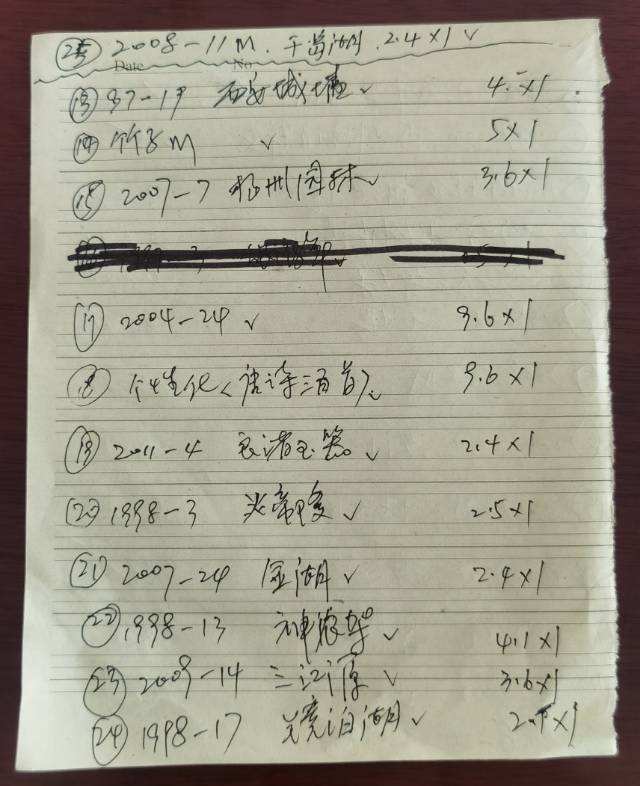 ㉕ 2008-11M.千岛湖.2.4×1 ✓
Date No
⑬ 97-19 西安城墙 ✓ 4.-×1
⑭ 竹子M ✓ 5×1
⑮ 2007-7 扬州园林 ✓ 3.6×1
⑰ 2004-24 ✓ 9.6×1
⑱ 个性化<唐诗三百首> ✓ 9.6×1
⑲ 2011-4 良渚玉器 ✓ 2.4×1
⑳ 1998-3 ✓ 2.5×1
㉑ 2007-24 金湖 ✓ 2.4×1
㉒ 1998-13 神农架 ✓ 4.1×1
㉓ 2009-14 三江源 ✓ 3.6×1
㉔ 1998-17 镜泊湖 ✓ ×1